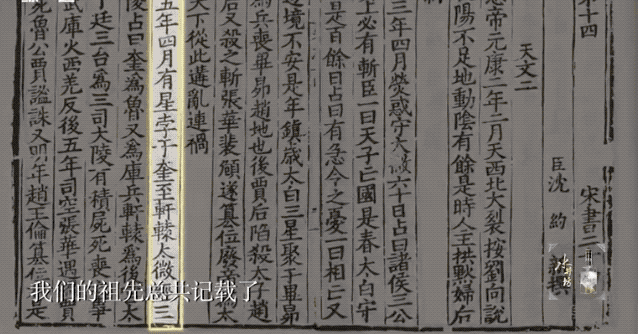 第十四 宋書二
臣沈約 新撰
天文二
惠帝元康二年二月天西北大裂按劉向說
陽不足地動陰有餘是時人主拱默婦后
三年四月熒惑守太微六十日占曰諸侯三公
上必有斬臣一曰天子亡國是春太白守
是百餘日占曰有急令之憂一曰相亡又
邊境不安是年鎮歲太白三星聚于畢昴
爲兵喪畢昴趙地也後賈后陷殺太子趙
后又殺之斬張華裴頠遂篡位廢帝爲太
天下從此遘亂連禍
五年四月有星孛于奎至軒轅太微經三
陵占曰奎爲魯又爲庫兵軒轅爲後太
廷三台爲三司大陵有積屍死喪之事
庫火西羌反後五年司空張華遇禍賈
死魯公賈謐誅又明年趙王倫篡位是
我们的祖先总共记载了